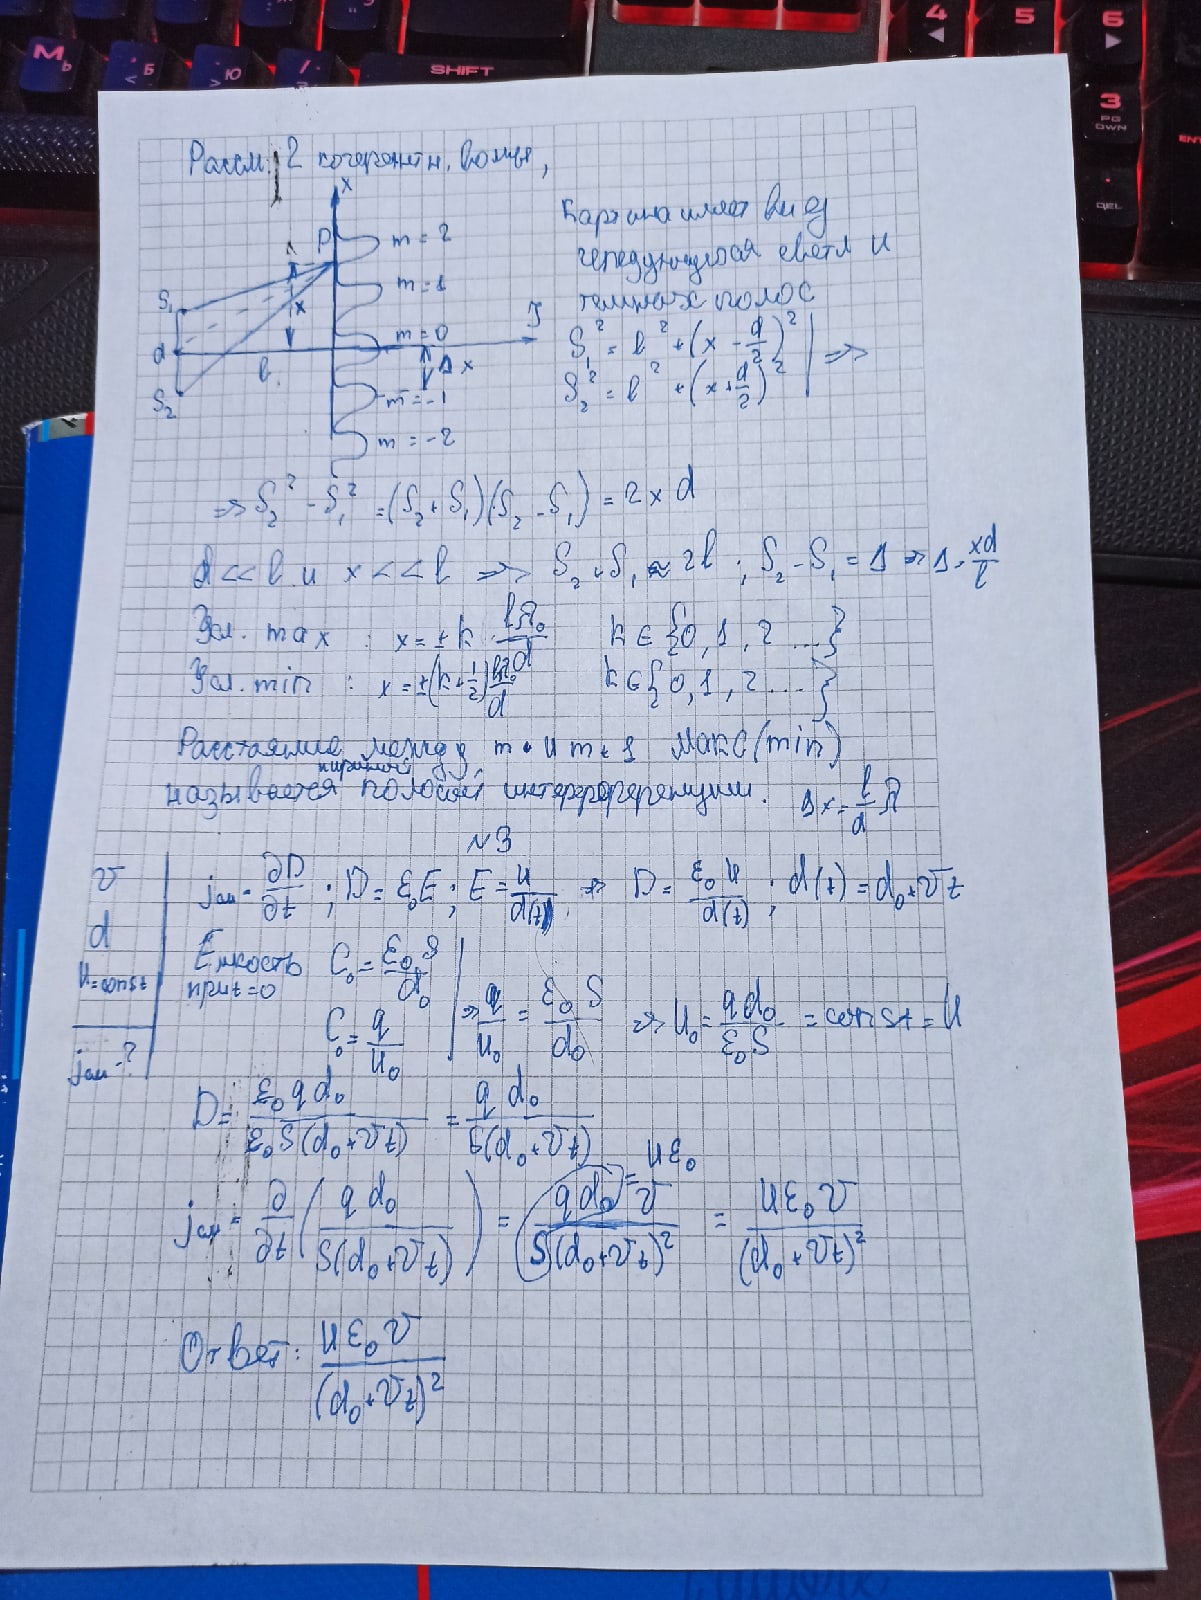 М Ь
Б <
Ю >
/
SHIFT
4
5
6
3
PG DWN
DEL
Рассм. 2 когерентн. волны,
x
P
m = 2
m = 1
m = 0
m = -1
m = -2
S₁
d
S₂
x
l
Δx
J
Картина имеет вид
чередующихся светл и
темных полос
S₁² = l² + (x - d/2)²
S₂² = l² + (x + d/2)² | =>
=> S₂² - S₁² = (S₂ + S₁)(S₂ - S₁) = 2xd
d << l и x << l => S₂ + S₁ ≈ 2l ; S₂ - S₁ = Δ => Δ = xd/l
Усл. max : x = ± k lλ₀/d k ∈ {0, 1, 2 ...}
Усл. min : x = ±(k + 1/2) lλ₀/d k ∈ {0, 1, 2 ...}
Расстояние между m и m + 1 макс (min)
называется шириной полосы интерференции. Δx = l/d λ
N3
v
d
U = const
jсм - ?
jсм = ∂D/∂t ; D = ε₀E ; E = U/d(t) => D = ε₀U/d(t) ; d(t) = d₀ + vt
Ёмкость при t=0 C₀ = ε₀S/d₀
C₀ = q/U₀ | => q/U₀ = ε₀S/d₀ => U₀ = qd₀/ε₀S = const = U
D = ε₀qd₀/ε₀S(d₀+vt) = qd₀/S(d₀+vt)
= Uε₀
jсм = ∂/∂t (qd₀/S(d₀+vt)) = qd₀v/S(d₀+vt)² = Uε₀v/(d₀+vt)²
Ответ: Uε₀v/(d₀+vt)²